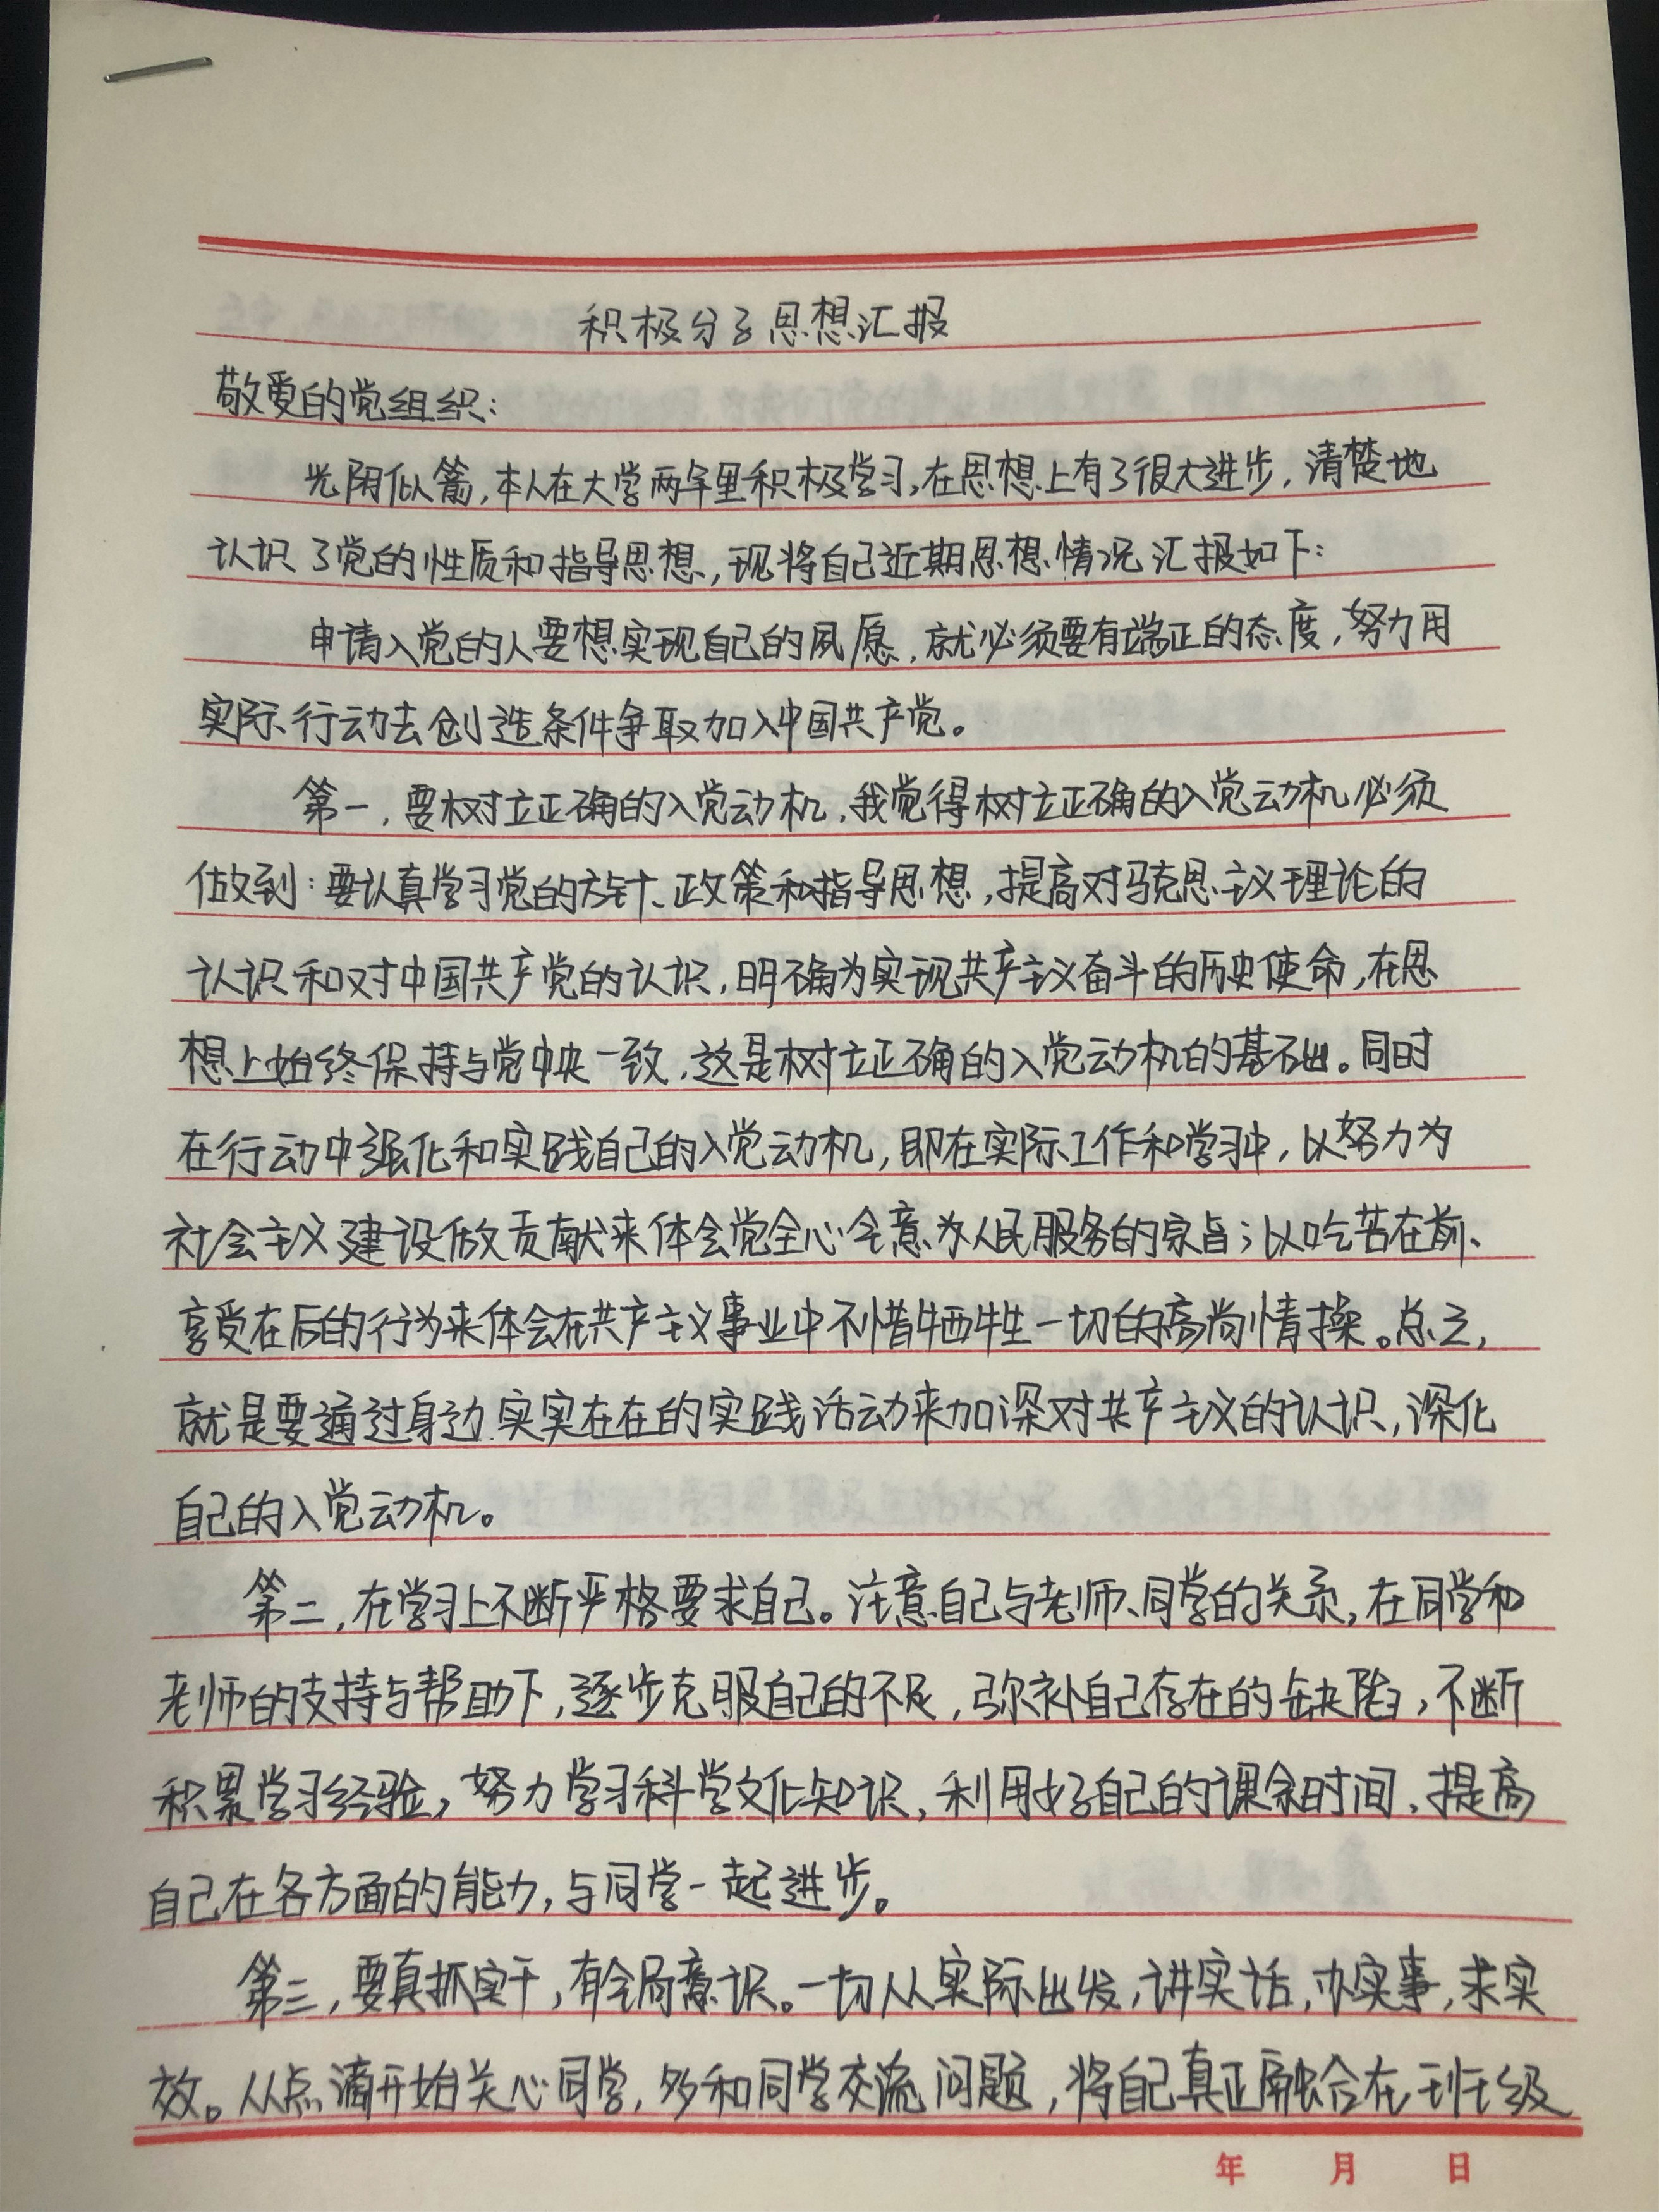 积极分子思想汇报
敬爱的党组织：
光阴似箭，本人在大学两年里积极学习，在思想上有了很大进步，清楚地
认识了党的性质和指导思想，现将自己近期思想情况汇报如下：
申请入党的人要想实现自己的夙愿，就必须要有端正的态度，努力用
实际行动去创造条件争取加入中国共产党。
第一，要树立正确的入党动机，我觉得树立正确的入党动机必须
做到：要认真学习党的方针、政策和指导思想，提高对马克思主义理论的
认识和对中国共产党的认识，明确为实现共产主义奋斗的历史使命，在思
想上始终保持与党中央一致，这是树立正确的入党动机的基础。同时
在行动中强化和实践自己的入党动机，即在实际工作和学习中，以努力为
社会主义建设做贡献来体会党全心全意为人民服务的宗旨；以吃苦在前、
享受在后的行为来体会在共产主义事业中不惜牺牲一切的高尚情操。总之，
就是要通过身边实实在在的实践活动来加深对共产主义的认识，深化
自己的入党动机。
第二，在学习上不断严格要求自己。注意自己与老师、同学的关系，在同学和
老师的支持与帮助下，逐步克服自己的不足，弥补自己存在的缺陷，不断
积累学习经验，努力学习科学文化知识，利用好自己的课余时间，提高
自己在各方面的能力，与同学一起进步。
第三，要真抓实干，有全局意识。一切从实际出发，讲实话，办实事，求实
效。从点滴开始关心同学，多和同学交流问题，将自己真正融合在班级
年 月 日